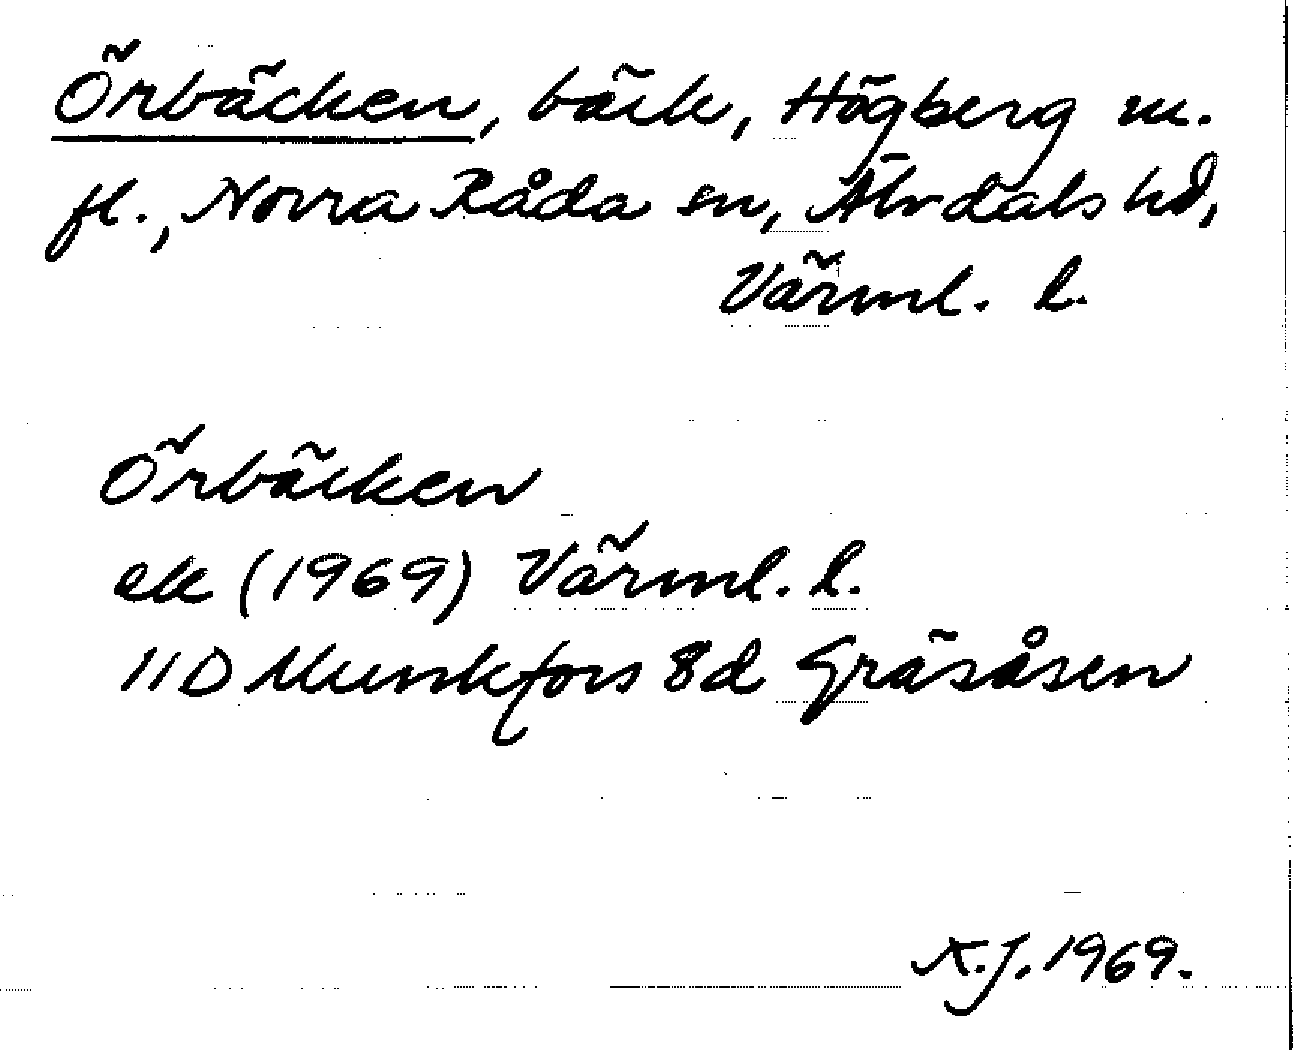 Örbäcken, bäck, Högberg m.
fl., Norra Råda sn, Älvdals hd,
Värml. l.
Örbäcken
ek (1969) Värml. l.
11D Munkfors 8d Gräsåsen
K.J. 1969.